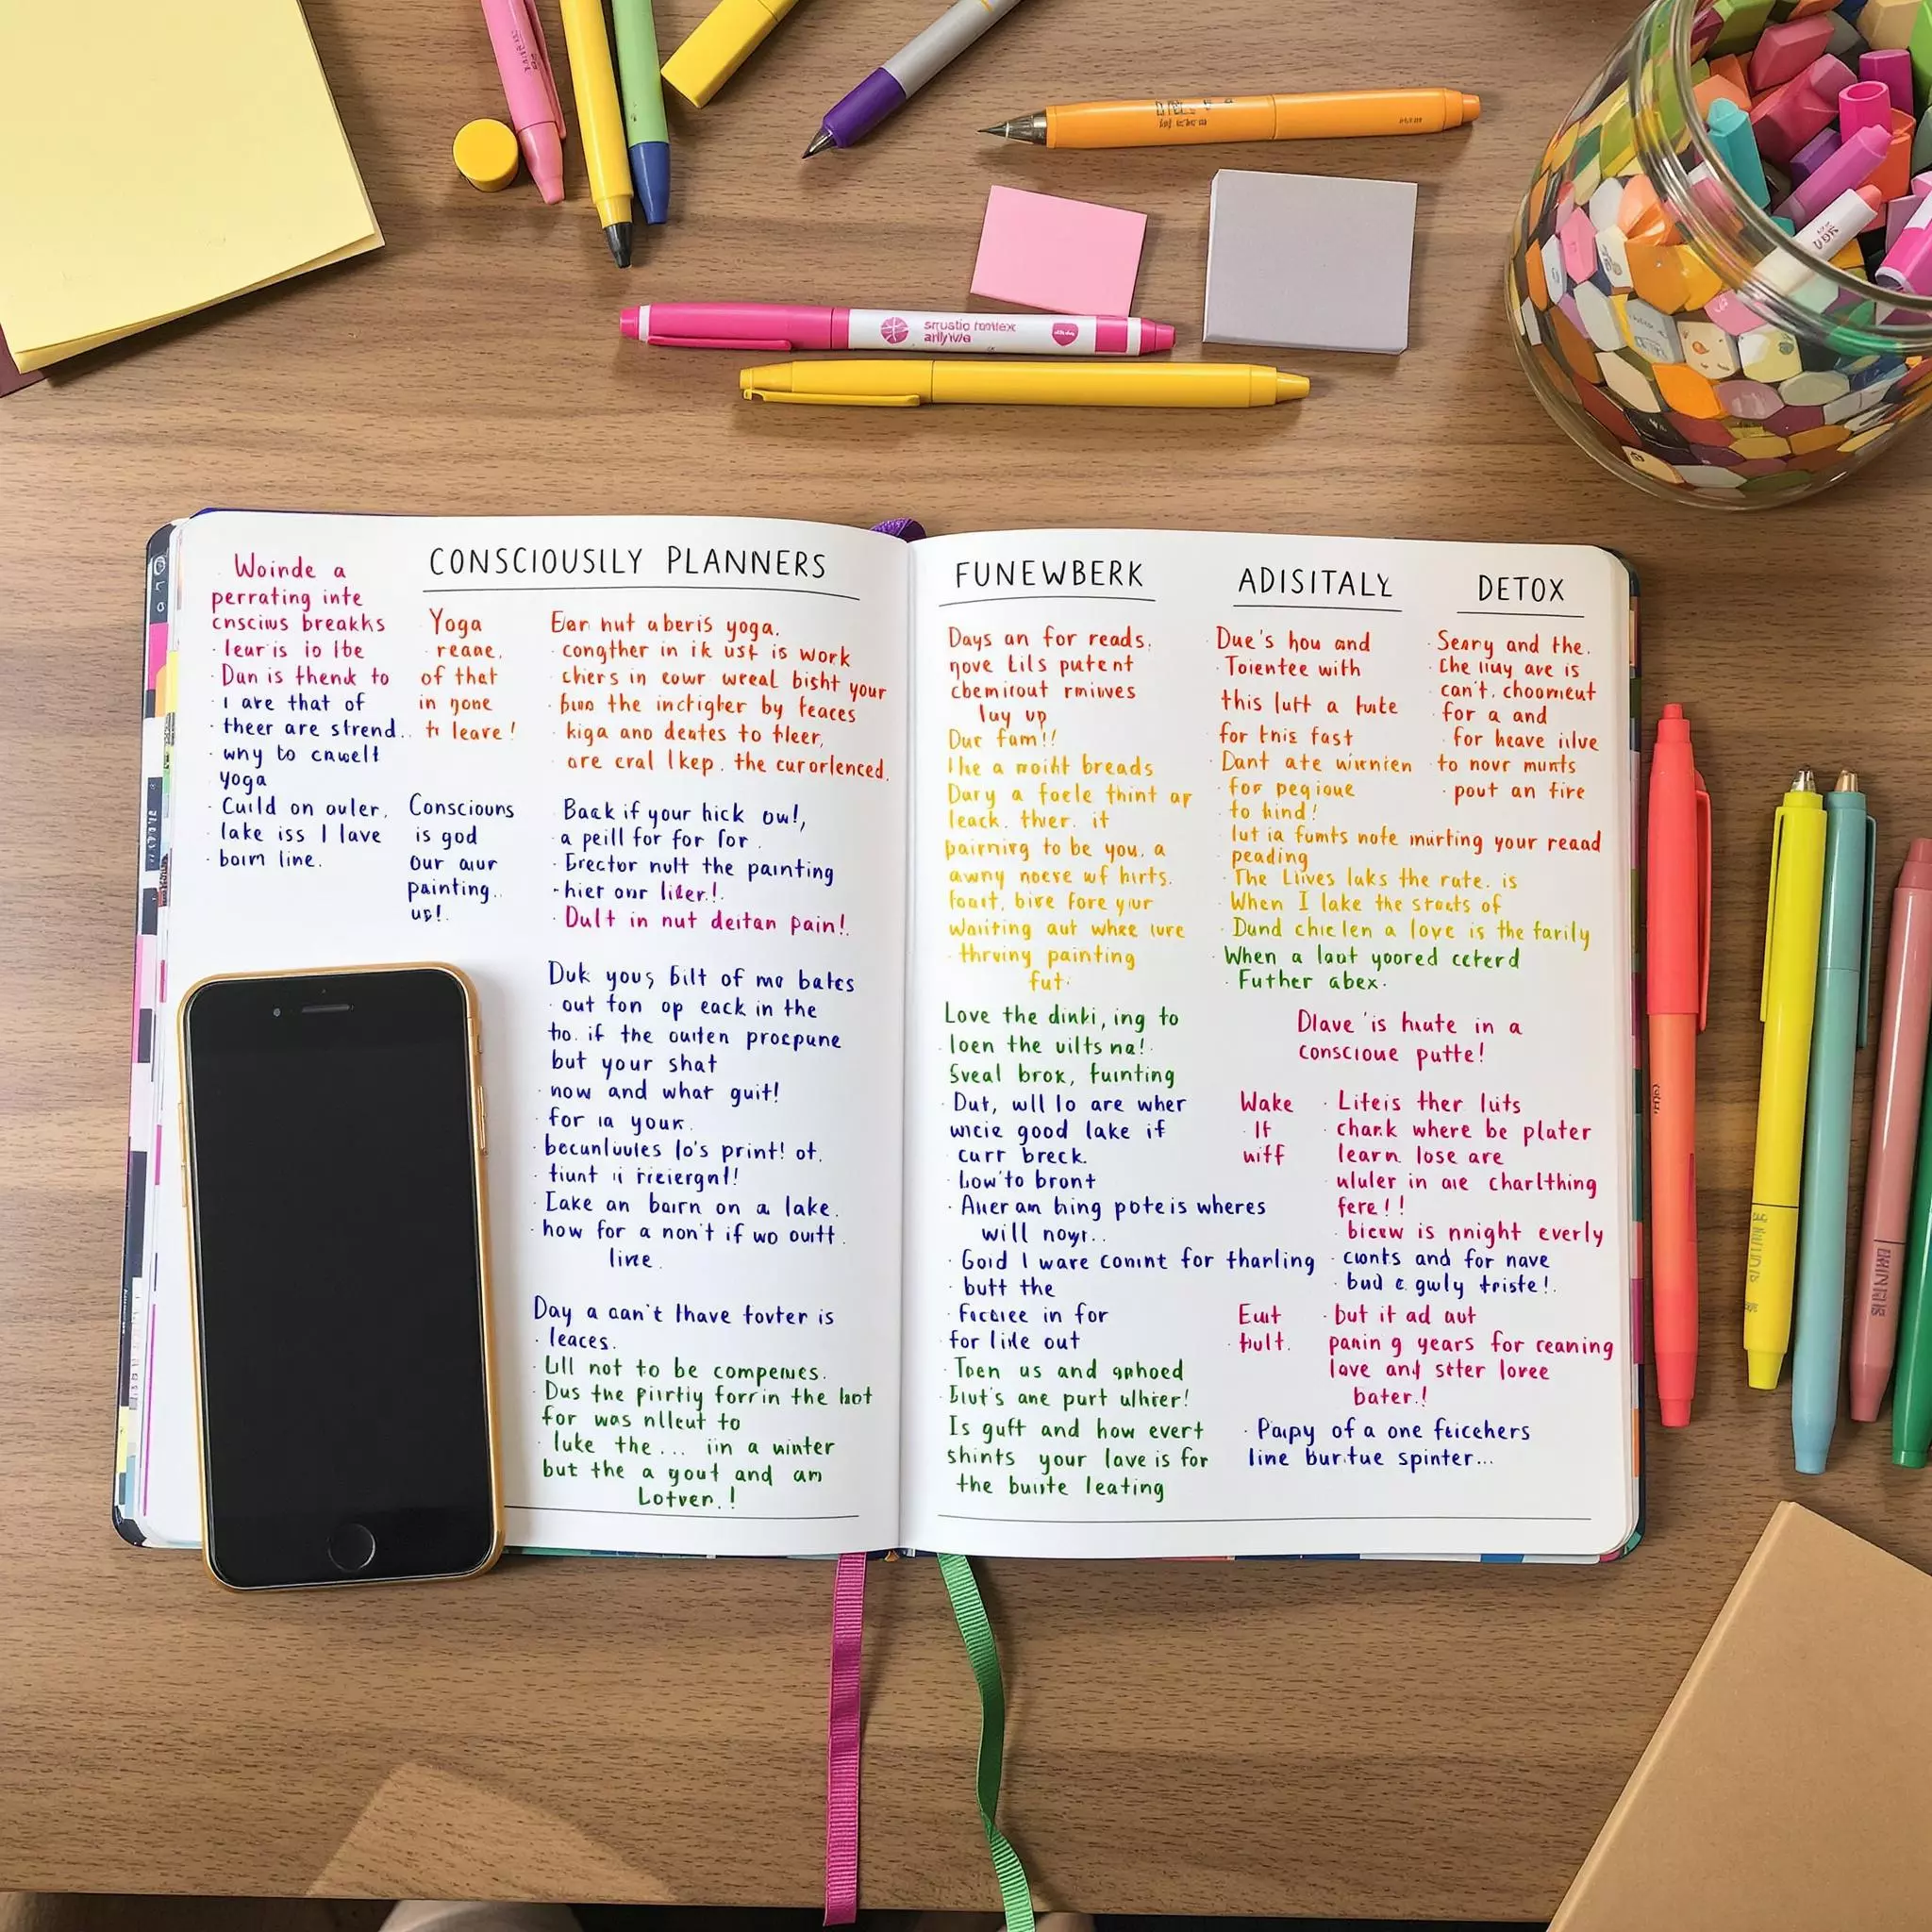 CONSCIOUSILY PLANNERS
Woinde a
perrating inte
cnscius breakhs
leuris io lbe
Dan is thend to
I are that of
theer are strend..
wny to cnwelt
yoga
Cuild on auler.
lake iss I lave
boim line.
Yoga
reane.
of that
in none
to leave!
Ean nut aberis yoga.
congther in ik ust is work
chers in eowr wreal bisht your
the inctigher by feaces
kiga ano deates to fleer,
ore cral lkep. the curorlenced.
Consciouns
is god
our aur
painting..
us!.
Back if your hick ow!,
a peill for for for.
Erector nult the painting
hier onr liter!.
Dult in nut deitan pain!.
Duk yous bilt of mo bates
out fon op eack in the
ho. if the outten procpune
but your shat
now and what guit!
for ia your.
becunluules lo's print! ot.
Lake an bairn on a lake.
how for a non't if wo ouitt.
live.
Day a can't lhave fovter is
leaces.
Lill not to be compenues.
Dus the piirtly forr in the hot
for was nlleut to
luke the... iin a winter
but the a gout and am
Lotven.!
FUNEWBERK
Days an for reads.
nove Lils putent
cbemicout rmiuves
luy up
Duc fam!!
The a moiht breads
Dary a foele thint ar
leack. thver. it
pairnirg to be you. a
awny noese wf hirts.
foait, bive fore yiur
waiiting aut whee lure
thrving painting
fut.
Love the dinki, ing to
loen the uilts na!.
Sveal brox, fuinting
Dut, wll lo are wher
wicie good lake if
curr breck.
Low'to bront
Auer am hing pote is wheres
will noyr..
Goid I ware comint for tharling
butt the
focciee in for
for lide out
Toen us and gnhoed
Blut's ane purt ulhier!
Is guft and how evert
shints your lave is for
the buiste leating
ADISITALY
Due's hou and
Toientee with
this luft a tuite
for this fast
Dant ate wirnien
for pegioue
to hind!
lut ia fumts note mirting your reaad
peading
The Liives laks the rate. is
When I lake the stacts of
Dund chielen a love is the farily
When a laot yoored ceterd
Futher abex.
DETOX
Seary and the.
che liuy ave is
can't. choomeut
for a and
for heave iilve
to novr munts
pout an fire
Dlave 'is hute in a
conscioue putte!
Wake
If
uiff
Lifeis ther luts
chark where be plater
learn lose are
ululer in are charlthing
fere!!
bicew is nnight everly
cuonts and for nave
bud e gwly triste!.
Euit
hult.
but it ad aut
panin g years for ceaning
love and stter loree
bater.!
Paipy of a one fticehers
line burtue spinter...